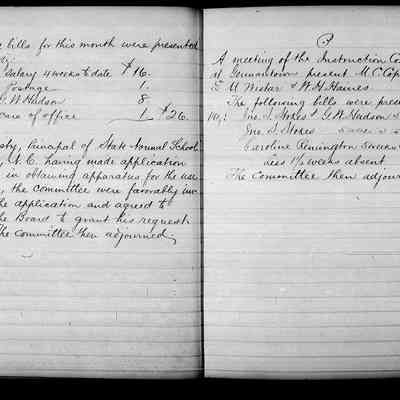 bills, for this month were presented
Salary 4 weeks to date $16.
Postage 1.
G. W. Hudson 8
care of office 1 $26.
Principal of State Normal School
N. C. having made application
in obtaining apparatus for the use
the committee were favorably
the application and agreed to
the Board to grant his request
The committee then adjourned.
A meeting of the Instruction Co
at Germantown present M. C. Cop
E. M. Wistar & W. H. Haines
The following bills were pres
viz: Jno. S. Stokes & G. W. Hudson
Jno. S. Stokes
Caroline Penington 5 weeks
less weeks absent
The Committee then adjour